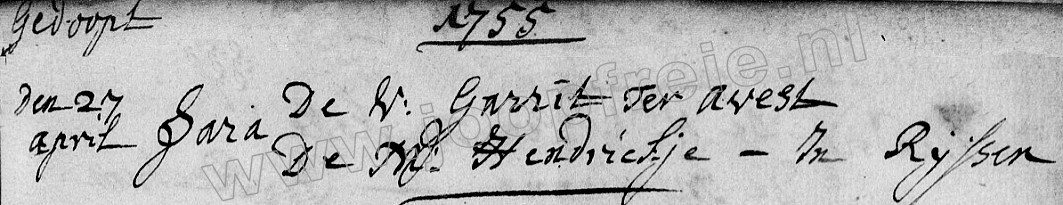 Gedoopt 1755
den 27 april Sara De V: Garrit ter avest
De M: Hendrickje - In Ryssen
www.joopfreie.nl